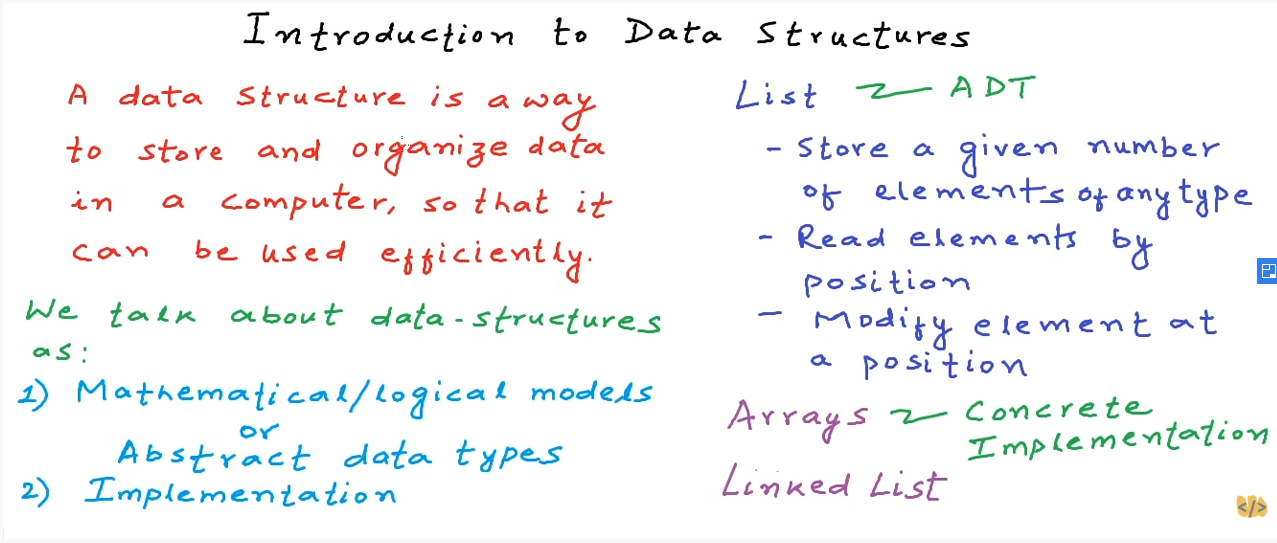 Introduction to Data Structures
A data structure is a way
to store and organize data
in a computer, so that it
can be used efficiently.
We talk about data-structures
as:
1) Mathematical/logical models
or
Abstract data types
2) Implementation
List ADT
- Store a given number
of elements of any type
- Read elements by
position
- Modify element at
a position
Arrays Concrete
Implementation
Linked List
</>